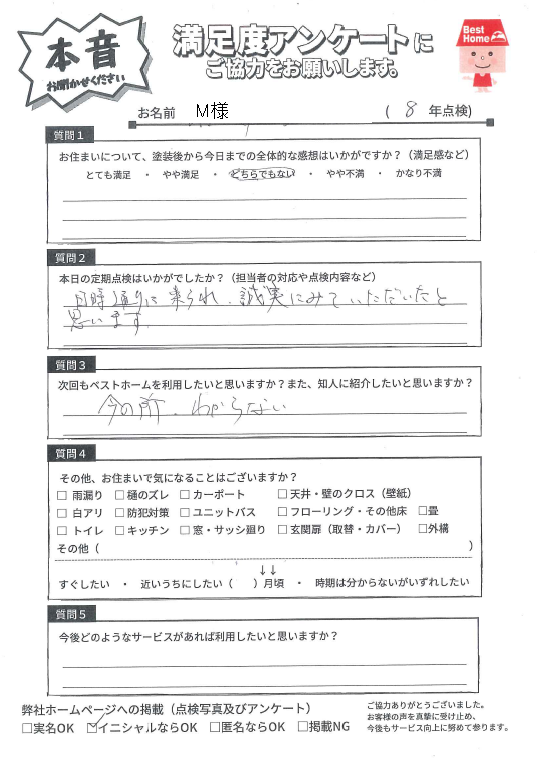 本音
お聞かせください
満足度アンケートに
ご協力をお願いします。
Best Home
お名前 M様 ( 8 年点検)
質問1
お住まいについて、塗装後から今日までの全体的な感想はいかがですか?(満足感など)
とても満足 ・ やや満足 ・ どちらでもない ・ やや不満 ・ かなり不満
質問2
本日の定期点検はいかがでしたか?(担当者の対応や点検内容など)
日時通りに来られ、誠実にみていただいたと
思います。
質問3
次回もベストホームを利用したいと思いますか?また、知人に紹介したいと思いますか?
今の所、わからない
質問4
その他、お住まいで気になることはございますか?
□ 雨漏り □ 樋のズレ □ カーポート □ 天井・壁のクロス(壁紙)
□ 白アリ □ 防犯対策 □ ユニットバス □ フローリング・その他床 □畳
□ トイレ □ キッチン □ 窓・サッシ廻り □ 玄関扉(取替・カバー) □外構
その他( )
↓↓
すぐしたい ・ 近いうちにしたい( )月頃 ・ 時期は分からないがいずれしたい
質問5
今後どのようなサービスがあれば利用したいと思いますか?
弊社ホームページへの掲載(点検写真及びアンケート)
□実名OK ☑イニシャルならOK □匿名ならOK □掲載NG
ご協力ありがとうございました。
お客様の声を真摯に受け止め、
今後もサービス向上に努めて参ります。